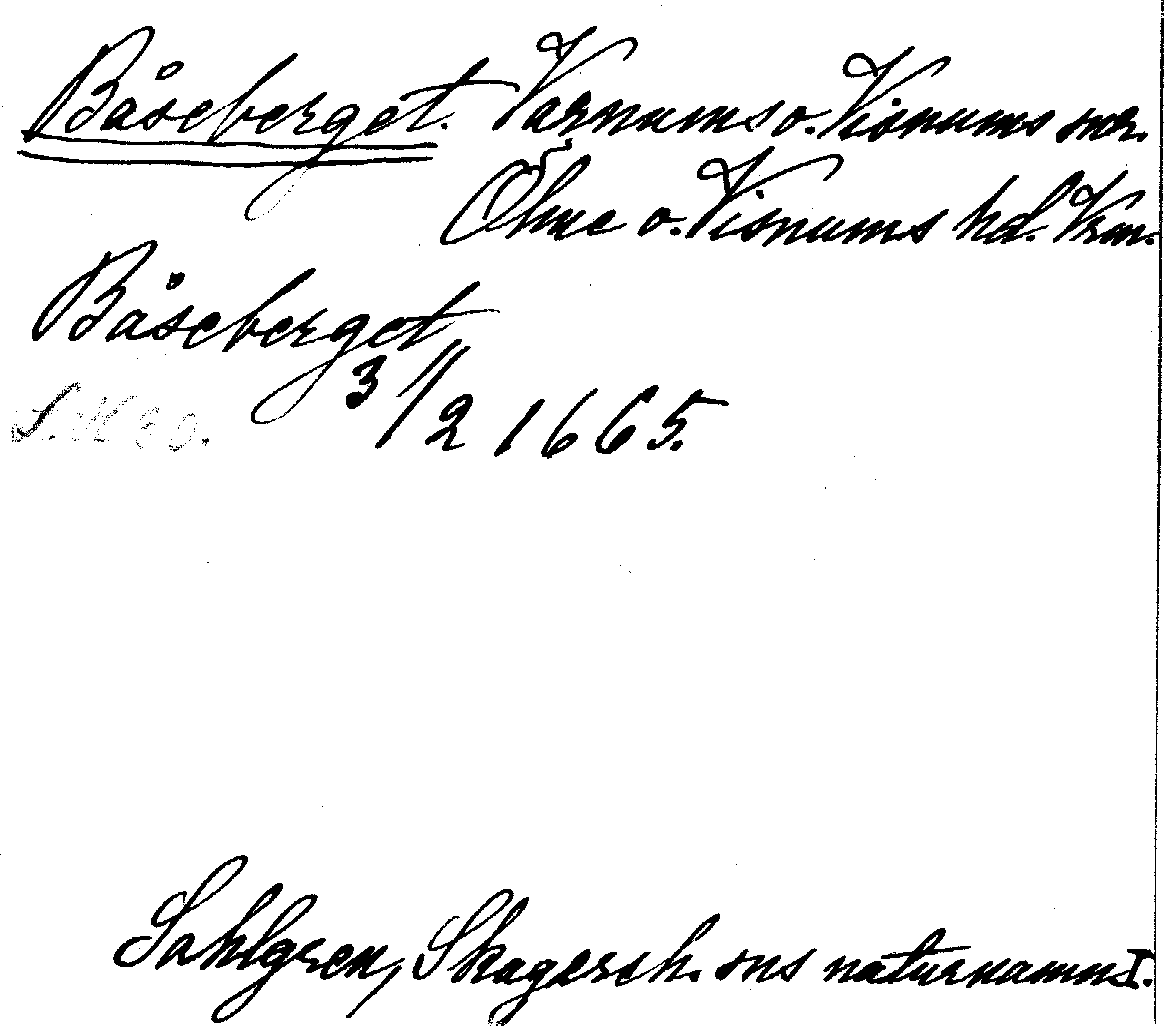 Båseberget. Varnums o. Visnums snr.
Ölme o. Visnums hd. Vrm.
Båseberget
3/11 2 1665.
Sahlgren, Skagersh. sns naturnamn I.